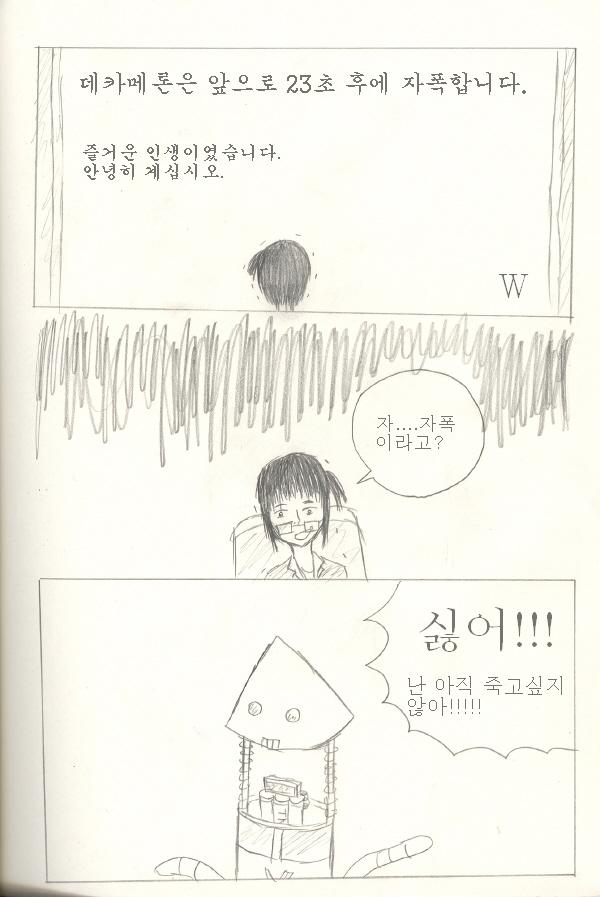 데카메론은 앞으로 23초 후에 자폭합니다.
즐거운 인생이였습니다.
안녕히 계십시오.
W
자....자폭
이라고?
싫어!!!
난 아직 죽고싶지
않아!!!!!